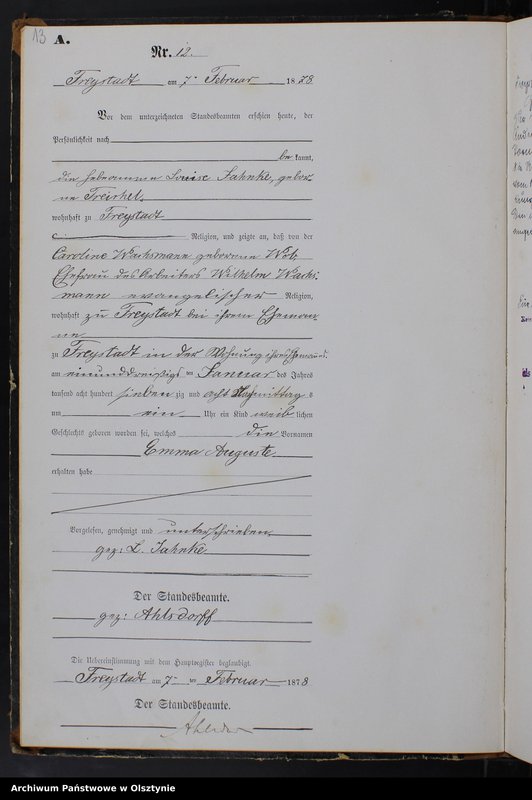 13
A.
Nr. 12.
Freystadt am 7. Februar 1878
Vor dem unterzeichneten Standesbeamten erschien heute, der
Persönlichkeit nach
be kannt,
die Hebeamme Louise Jahnke, gebor-
ne
wohnhaft zu Freystadt
Religion, und zeigte an, daß von der
Caroline Wachsmann geborene
Ehefrau des Arbeiters Wilhelm Wachs-
mann evangelischer Religion,
wohnhaft zu Freystadt bei ihrem Eheman-
ne
zu Freystadt in der Wohnung ihres Ehemanns
am einunddreißigs ten Januar des Jahres
tausend acht hundert sieben zig und acht Nachmittag s
um ein Uhr ein Kind weib lichen
Geschlechts geboren worden sei, welches die Vornamen
Emma Auguste
erhalten habe
Vorgelesen, genehmigt und unterschrieben.
gez: L. Jahnke
Der Standesbeamte.
gez: Ahlsdorff
Die Uebereinstimmung mit dem Hauptregister beglaubigt.
Freystadt am 7ten Februar 1878
Der Standesbeamte.
Archiwum Państwowe w Olsztynie